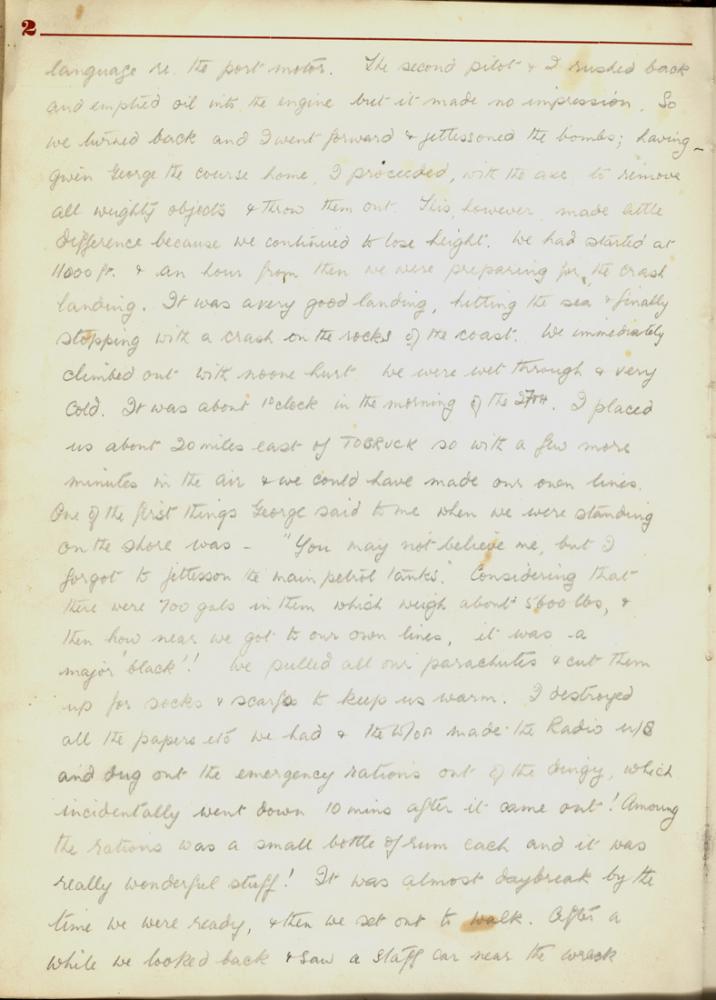 2
language re. the port motor. The second pilot & I rushed back
and emptied oil into the engine but it made no impression. So
we turned back and I went forward & jettessoned the bombs; having
given George the course home, I proceeded, with the axe, to remove
all weighty objects & throw them out. This, however, made little
difference because we continued to lose height. We had started at
11000 ft. & an hour from then we were preparing for the crash
landing. It was a very good landing, hitting the sea & finally
stopping with a crash on the rocks of the coast. We immediately
climbed out with noone hurt. We were wet through & very
cold. It was about 1 o'clock in the morning of the 27TH. I placed
us about 20 miles east of TOBRUCK so with a few more
minutes in the air & we could have made our own lines.
One of the first things George said to me when we were standing
on the shore was - "You may not believe me, but I
forgot to jettesson the main petrol tanks." Considering that
there were 700 gals in them which weigh about 5600 lbs, &
then how near we got to our own lines, it was a
major 'black'! We pulled all our parachutes & cut them
up for socks & scarfs to keep us warm. I destroyed
all the papers etc we had & the W/OP made the Radio u/s
and dug out the emergency rations out of the dingy, which
incidentally went down 10 mins after it came out! Among
the rations was a small bottle of rum each and it was
really wonderful stuff! It was almost daybreak by the
time we were ready, & then we set out to walk. After a
while we looked back & saw a staff car near the wreck